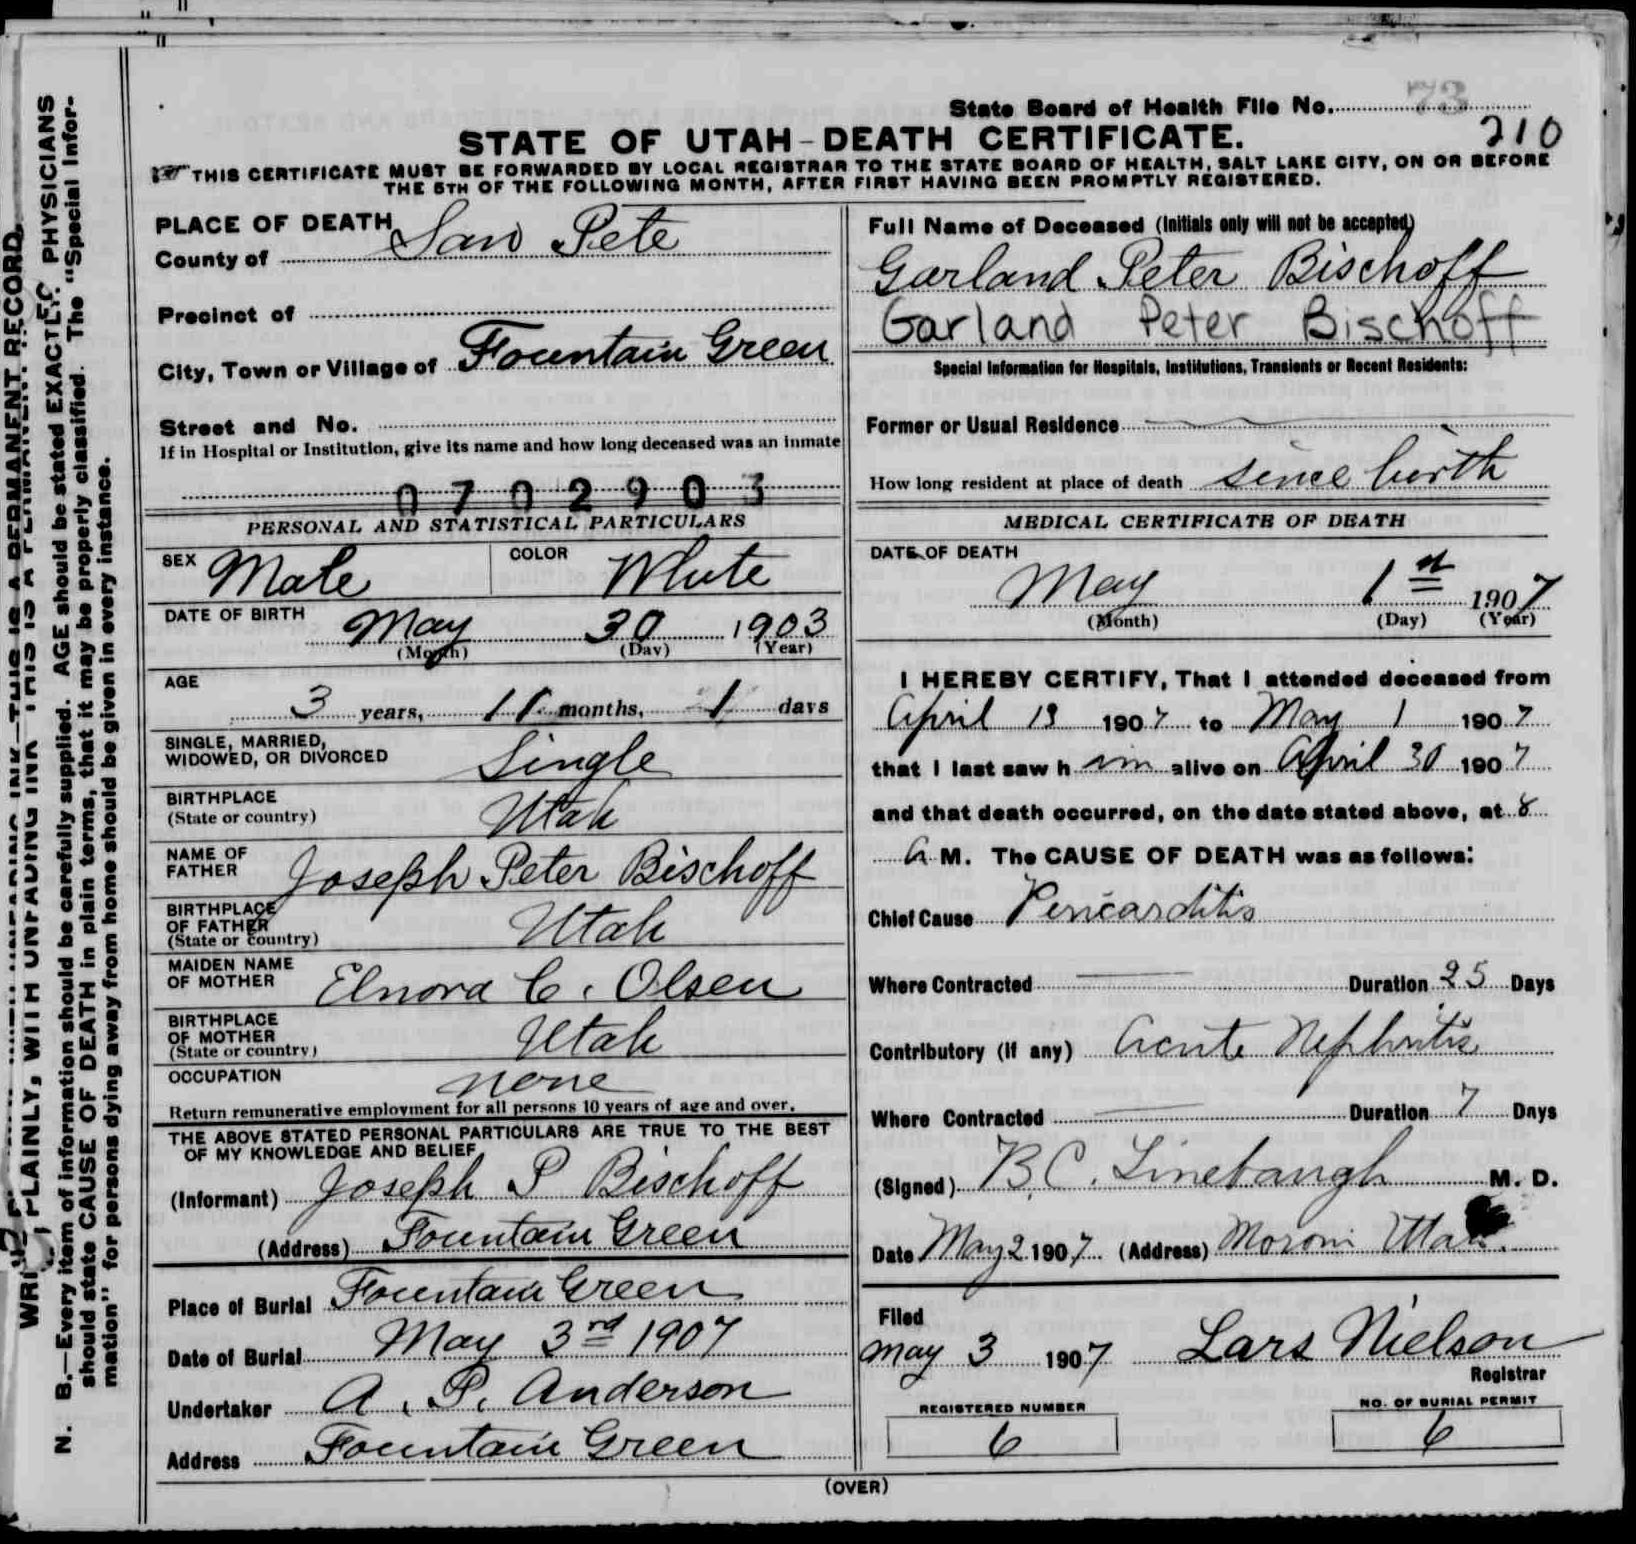 State Board of Health File No. 73
210
STATE OF UTAH-DEATH CERTIFICATE.
THIS CERTIFICATE MUST BE FORWARDED BY LOCAL REGISTRAR TO THE STATE BOARD OF HEALTH, SALT LAKE CITY, ON OR BEFORE
THE 5TH OF THE FOLLOWING MONTH, AFTER FIRST HAVING BEEN PROMPTLY REGISTERED.
PLACE OF DEATH
County of San Pete
Precinct of
City, Town or Village of Fountain Green
Street and No.
If in Hospital or Institution, give its name and how long deceased was an inmate
0702903
PERSONAL AND STATISTICAL PARTICULARS
SEX Male COLOR White
DATE OF BIRTH May 30 1903
(Month) (Day) (Year)
AGE
3 years, 11 months, 1 days
SINGLE, MARRIED,
WIDOWED, OR DIVORCED Single
BIRTHPLACE
(State or country) Utah
NAME OF
FATHER Joseph Peter Bischoff
BIRTHPLACE
OF FATHER
(State or country) Utah
MAIDEN NAME
OF MOTHER Elnora C. Olsen
BIRTHPLACE
OF MOTHER
(State or country) Utah
OCCUPATION none
Return remunerative employment for all persons 10 years of age and over.
THE ABOVE STATED PERSONAL PARTICULARS ARE TRUE TO THE BEST
OF MY KNOWLEDGE AND BELIEF
(Informant) Joseph P Bischoff
(Address) Fountain Green
Place of Burial Fountain Green
Date of Burial May 3rd 1907
Undertaker A. P. Anderson
Address Fountain Green
Full Name of Deceased (Initials only will not be accepted)
Garland Peter Bischoff
Garland Peter Bischoff
Special Information for Hospitals, Institutions, Transients or Recent Residents:
Former or Usual Residence
How long resident at place of death since birth
MEDICAL CERTIFICATE OF DEATH
DATE OF DEATH
May 1st 1907
(Month) (Day) (Year)
I HEREBY CERTIFY, That I attended deceased from
April 19 1907 to May 1 1907
that I last saw h im alive on April 30 1907
and that death occurred, on the date stated above, at 8
A M. The CAUSE OF DEATH was as follows:
Chief Cause Pericarditis
Where Contracted Duration 25 Days
Contributory (if any) Acute Nephritis
Where Contracted Duration 7 Days
(Signed) B. C. Linebaugh M. D.
Date May 2 1907 (Address) Moroni Utah.
Filed
May 3 1907 Lars Nielson
Registrar
REGISTERED NUMBER
6
NO. OF BURIAL PERMIT
6
(OVER)
PLAINLY, WITH UNFADING INK—THIS IS A PERMANENT RECORD.
N. B.—Every item of information should be carefully supplied. AGE should be stated EXACTLY. PHYSICIANS
should state CAUSE OF DEATH in plain terms, that it may be properly classified. The "Special Infor-
mation" for persons dying away from home should be given in every instance.